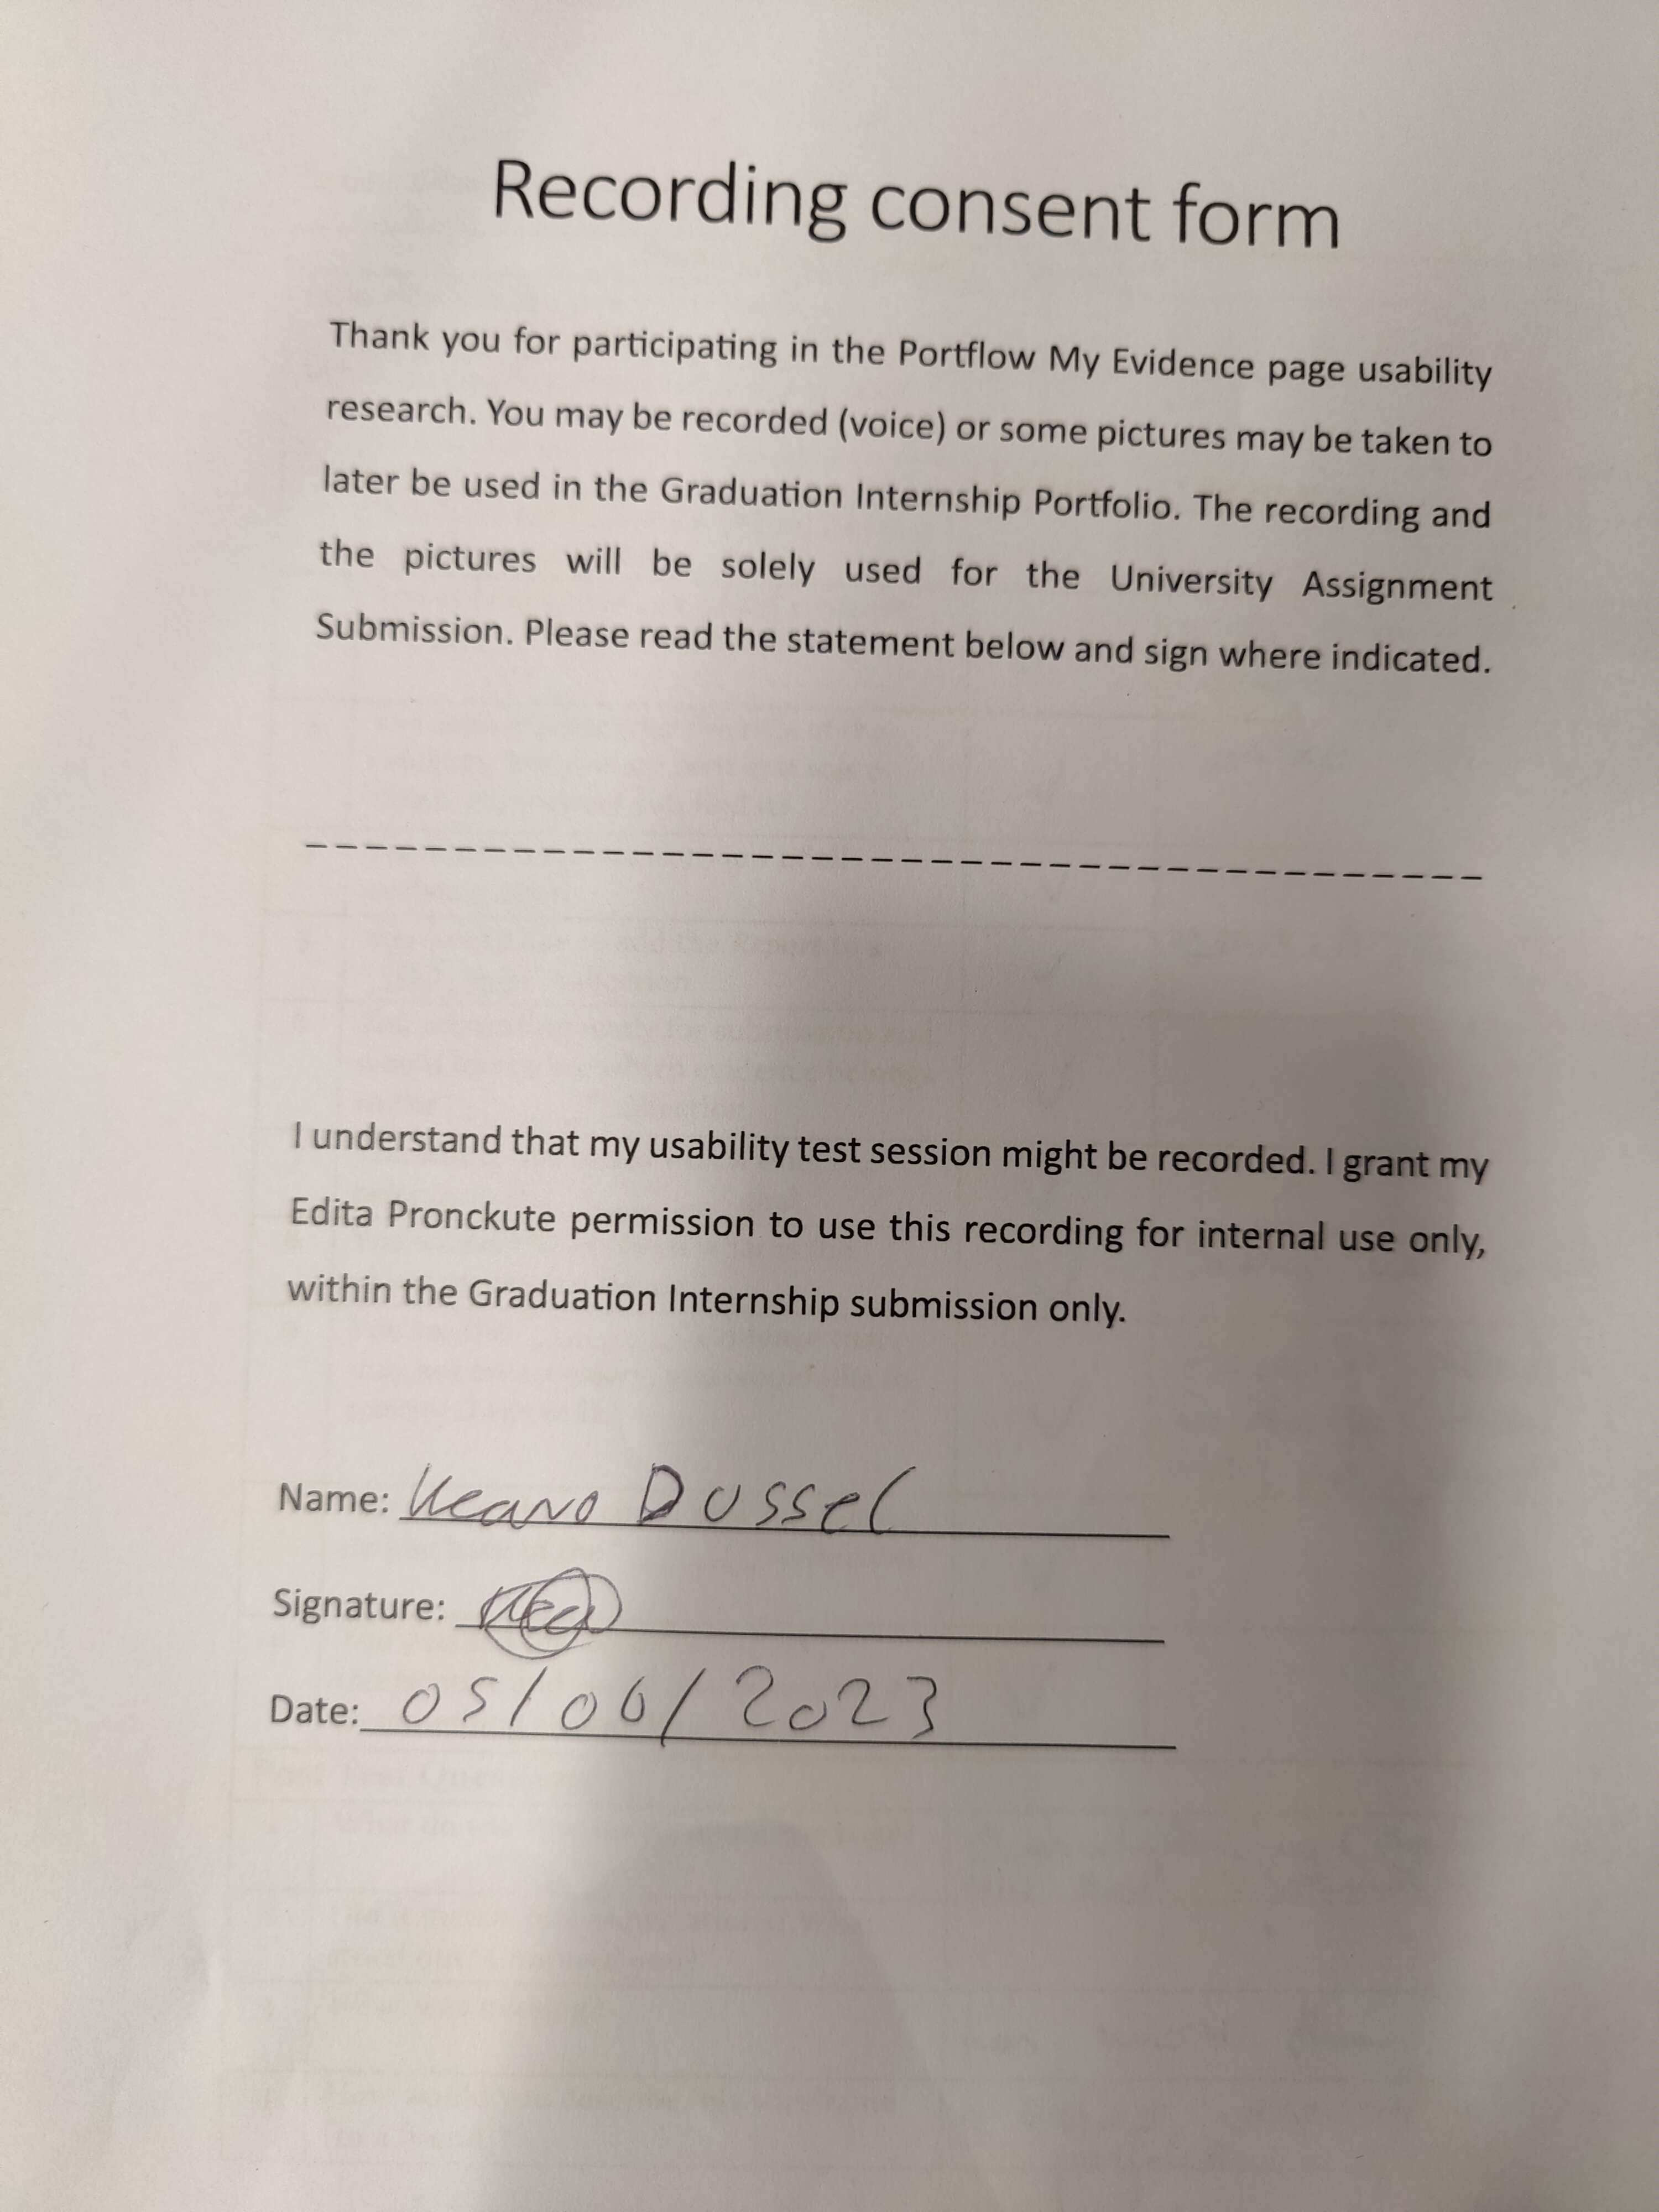 Recording consent form
Thank you for participating in the Portflow My Evidence page usability
research. You may be recorded (voice) or some pictures may be taken to
later be used in the Graduation Internship Portfolio. The recording and
the pictures will be solely used for the University Assignment
Submission. Please read the statement below and sign where indicated.
I understand that my usability test session might be recorded. I grant my
Edita Pronckute permission to use this recording for internal use only,
within the Graduation Internship submission only.
Name: Keano Dussel
Signature:
Date: 05/06/2023